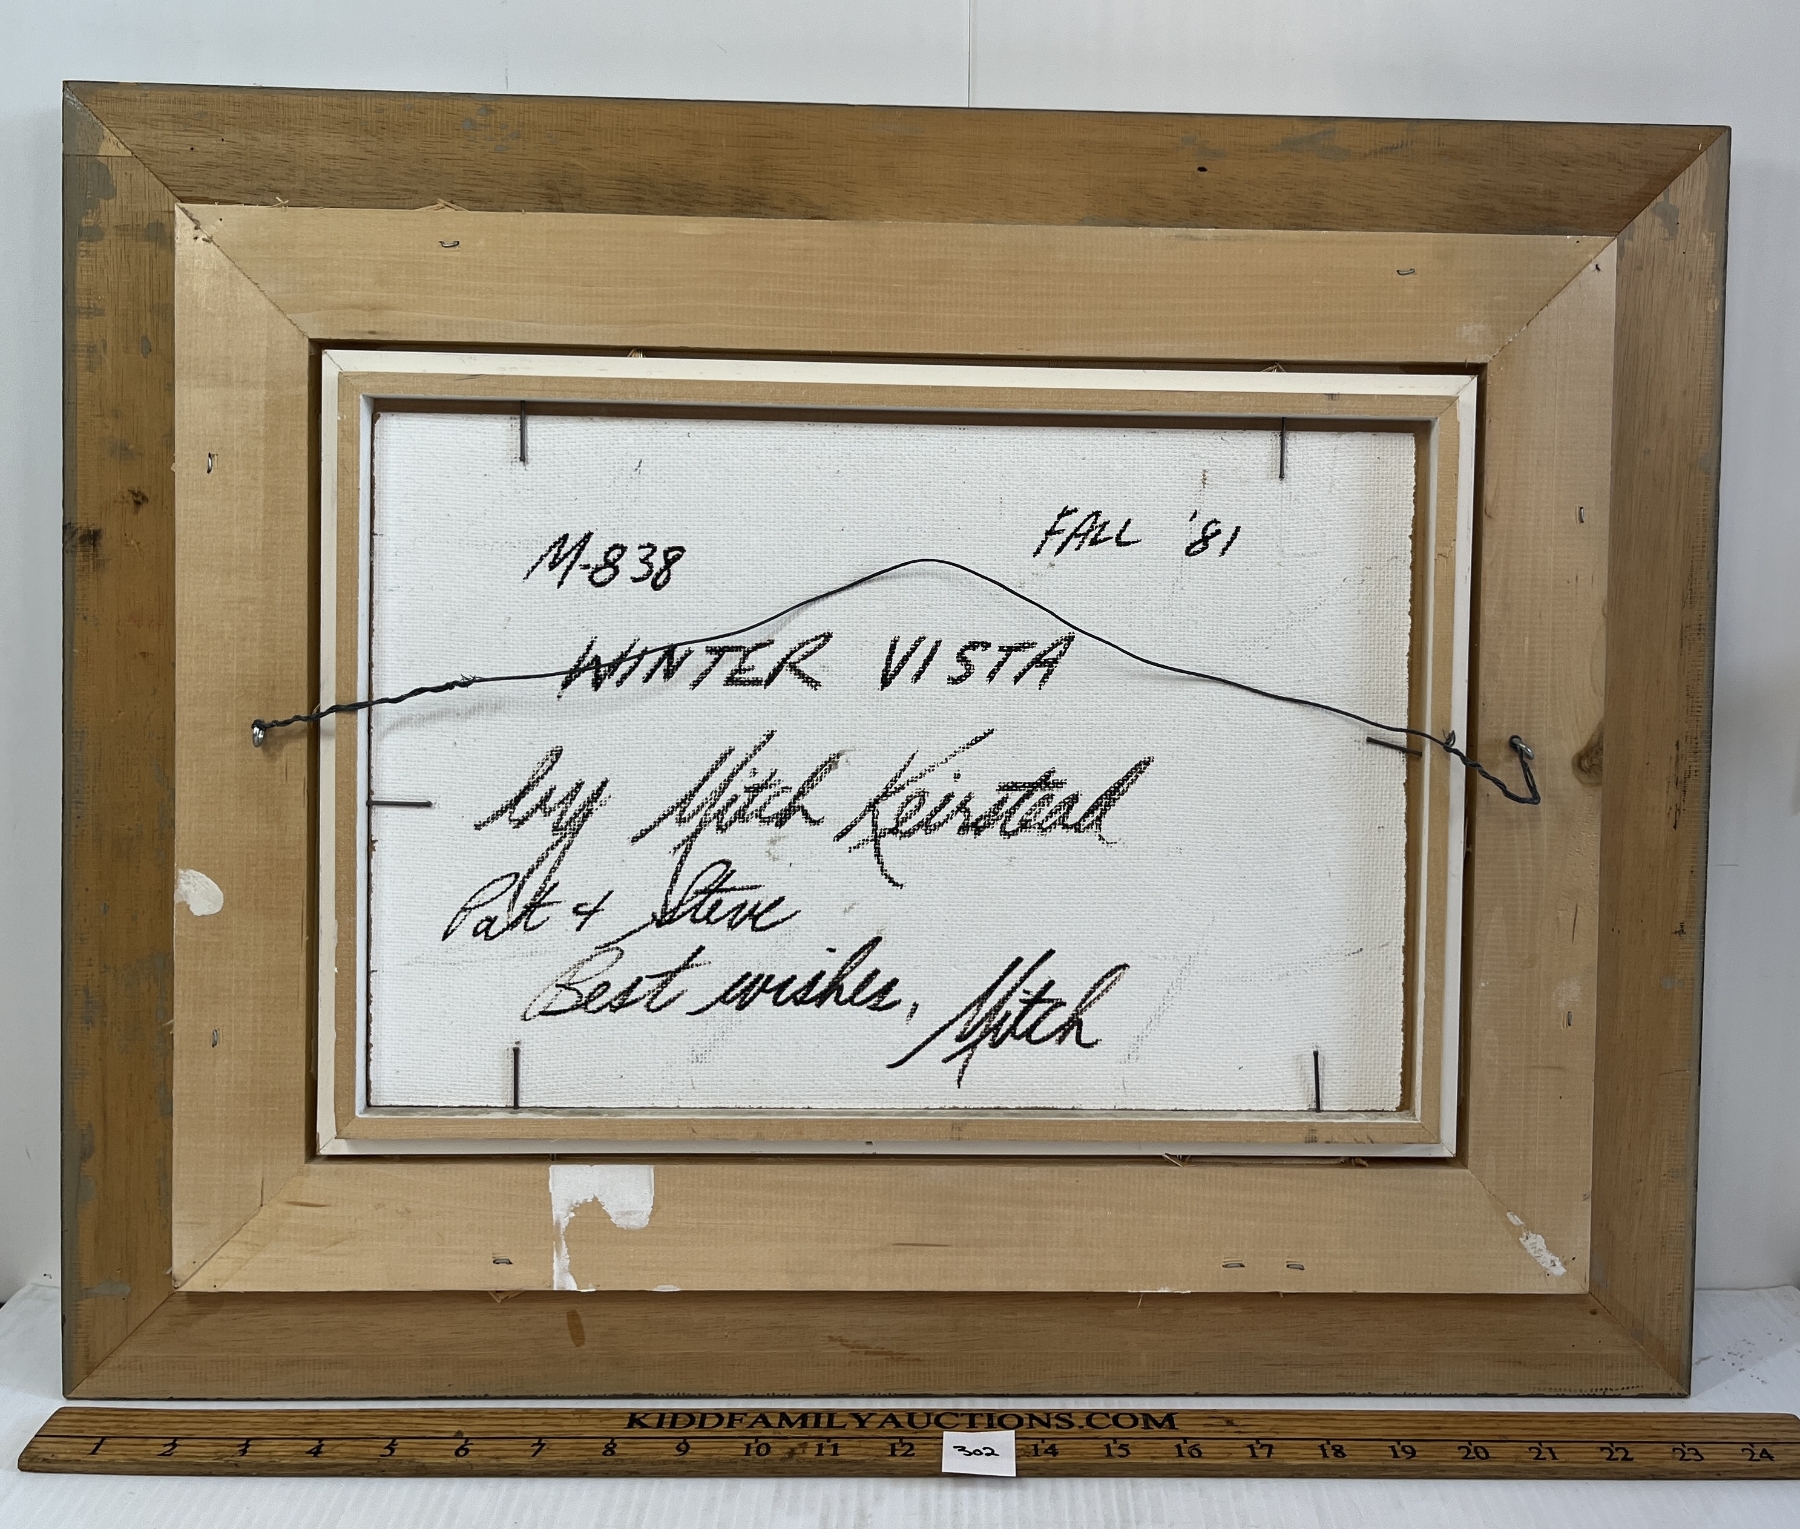 M-838 FALL '81
WINTER VISTA
by Mitch Keirstead
Pat & Steve
Best wishes, Mitch
KIDDFAMILYAUCTIONS.COM
1 2 3 4 5 6 7 8 9 10 11 12 302 14 15 16 17 18 19 20 21 22 23 24